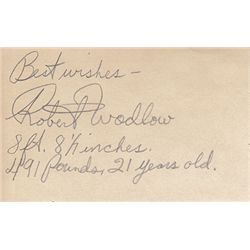 Best wishes -
Robert Wadlow
8 ft. 8½ inches.
491 pounds, 21 years old.